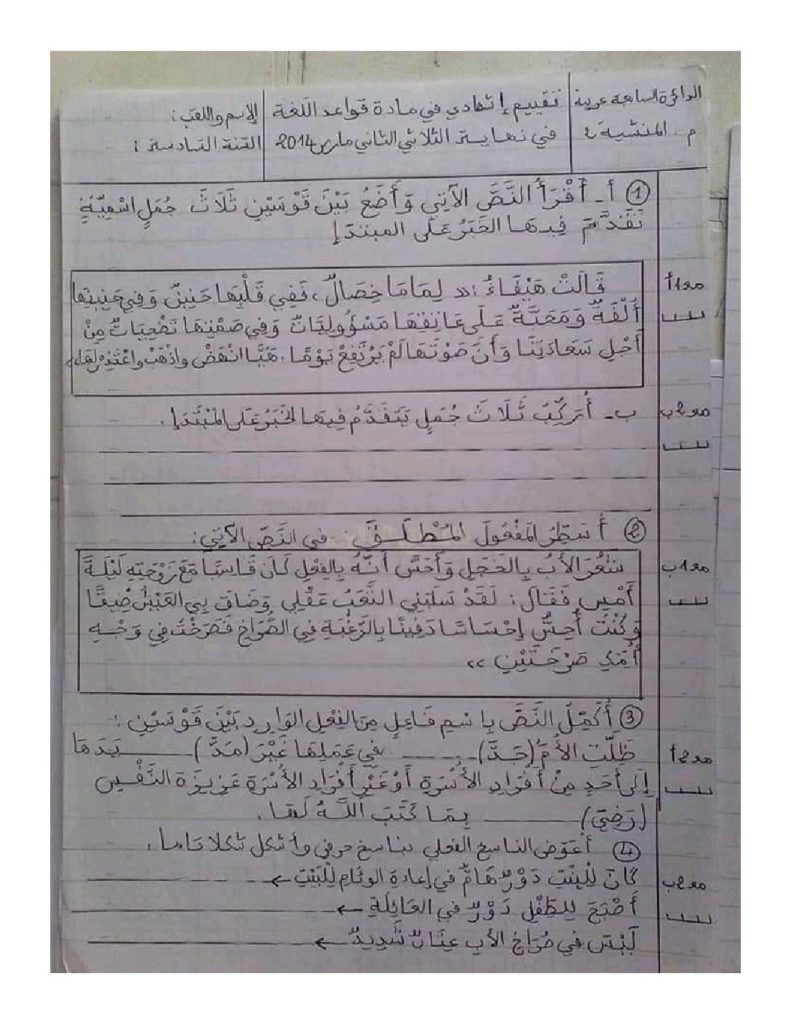 الدائرة الساهة عربية
م. المنشية 2
تقييم إشهادي في مادة قواعد اللغة
في نهاية الثلاثي الثاني مارس 2014
الإسم واللقب:
السنة السادسة:
① أ- أَقْرَأُ النَّصَّ الآتِي وَأَضَعُ بَيْنَ قَوْسَيْنِ ثَلَاثَ جُمَلٍ اسْمِيَّةٍ
تَقَدَّمَ فِيهَا الخَبَرُ عَلَى المبتدإ
مع1أ
قَالَتْ هَيْفَاءُ: «لِمَامَا خِصَالٌ، فَفِي قَلْبِهَا حَنِينٌ وَفِي
أُلْفَةٌ وَمَحَبَّةٌ عَلَى عَاتِقِهَا مَسْؤُولِيَّاتٌ وَفِي صَمْتِهَا تَضْحِيَاتٌ مِنْ
أَجْلِ سَعَادَتِنَا وَأَنَّ صَوْتَهَا لَمْ يَرْتَفِعْ يَوْمًا. هَيَّا انْهَضْ واذْهَبْ واعْتَذِرْ لَهَا»
مع2ب
ب- أُرَكِّبُ ثَلَاثَ جُمَلٍ يَتَقَدَّمُ فِيهَا الخَبَرُ عَلَى المُبْتَدَإِ.
② أُسَطِّرُ المَفْعُولَ المُطْلَقَ في النَّصِّ الآتِي:
مع1ب
شَعَرَ الأَبُ بِالخَجَلِ وَأَحَسَّ أَنَّهُ بِالفِعْلِ كَانَ قَاسِيًا مَعَ زَوْجَتِهِ لَيْلَةَ
أَمْسِ فَقَالَ: لَقَدْ سَلَبَنِي التَّعَبُ عَقْلِي وَضَاقَ بِيَ العَيْشُ ضِيقًا
وَكُنْتُ أُحِسُّ إِحْسَاسًا دَفِينًا بِالرَّغْبَةِ فِي الصُّرَاخِ فَصَرَخْتُ فِي وَجْهِ
أُمِّكِ صَرْخَتَيْنِ »
③ أُكْمِلُ النَّصَّ بِاسْمِ فَاعِلٍ مِنَ الفِعْلِ الوَارِدِ بَيْنَ قَوْسَيْنِ:
مع2أ
ظَلَّتْ الأُمُّ (جَدَّ) في عَمَلِهَا غَيْرَ (مَدَّ) يَدَهَا
إِلَى أَحَدٍ مِنْ أَفْرَادِ الأُسْرَةِ أَوْ غَيْرِ أَفْرَادِ الأُسْرَةِ عَزِيزَةَ النَّفْسِ
(رَضِيَ) بِمَا كَتَبَ اللَّهُ لَهَا.
④ أُعَوِّضُ الناسخ الفعلي بناسخ حرفي وأشكل شكلا تاما.
مع2ب
كَانَ لِلْبِنْتِ دَوْرٌ هَامٌّ في إعادةِ الوِئَامِ لِلْبَيْتِ ←
أَصْبَحَ لِلطِّفْلِ دَوْرٌ في العَائِلَةِ ←
لَيْسَ في صُرَاخِ الأَبِ عِتَابٌ شَدِيدٌ ←